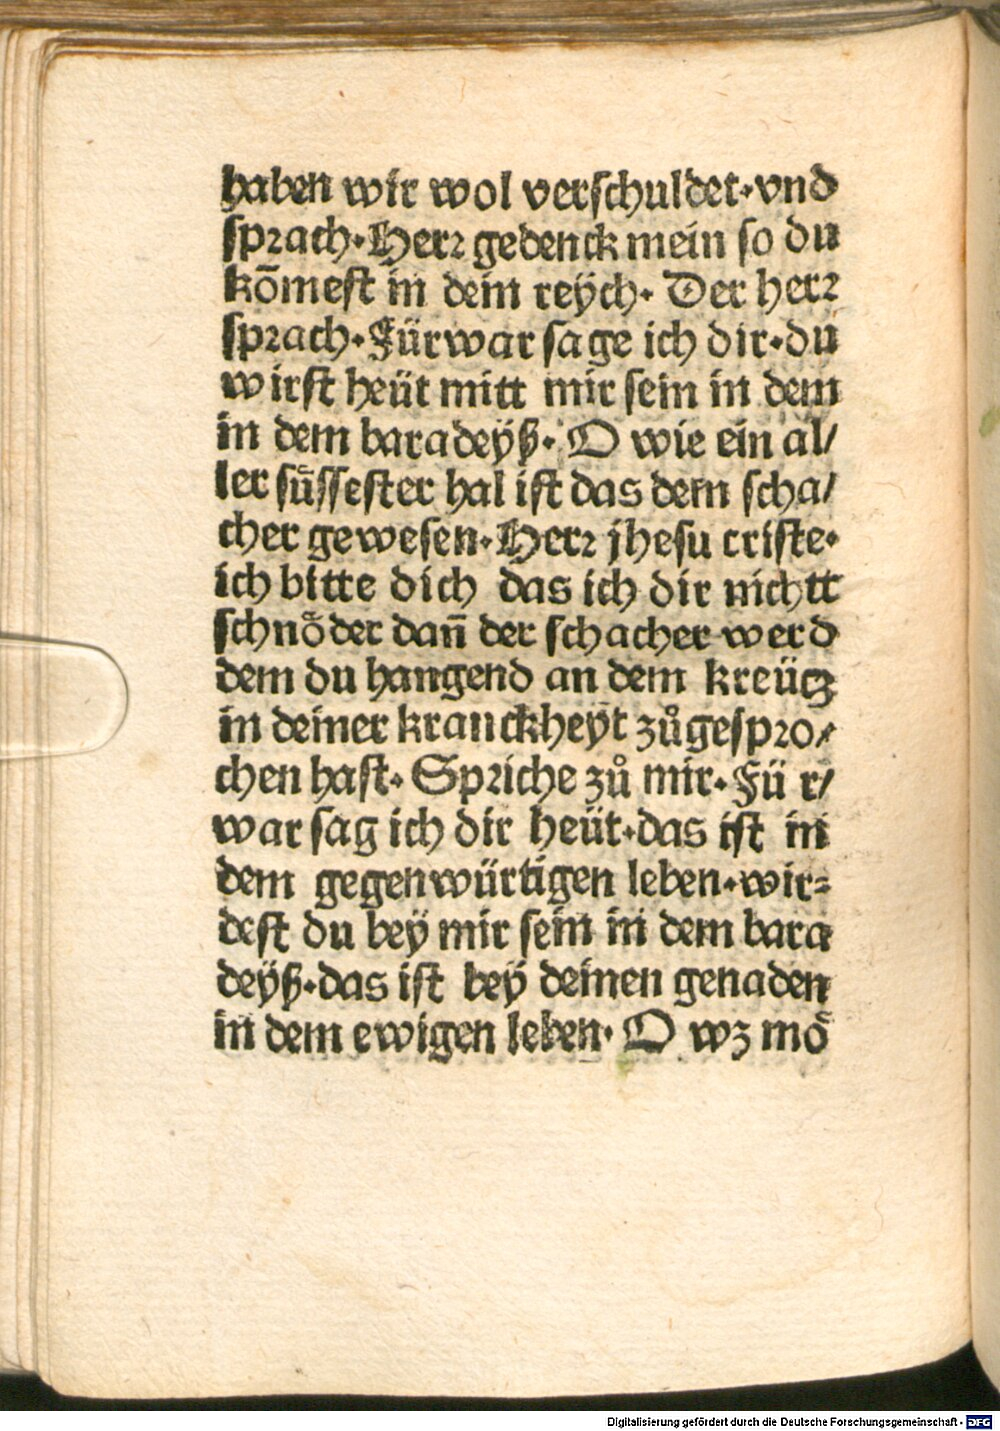 haben wir wol verschuldet·vnd
sprach·Herr gedenck mein so du
kōmest in dein reÿch· Der herr
sprach·Fürwar sage ich dir·du
wirst heüt mitt mir sein in dem
in dem baradeÿß· O wie ein al/
ler sůssester hal ist das dem scha/
cher gewesen·Herr jhesu criste·
ich bitte dich das ich dir nichtt
schnoͤder dañ der schacher werd
dem du hangend an dem kreütz
in deiner kranckheyt zůgespro/
chen hast· Spriche zů mir·Fü r/
war sag ich dir heüt·das ist in
dem gegenwürtigen leben·wir⸗
dest du beÿ mir sein in dem bara
deÿß·das ist beÿ deinen genaden
in dem ewigen leben· O wz moͤ
Digitalisierung gefördert durch die Deutsche Forschungsgemeinschaft - DFG